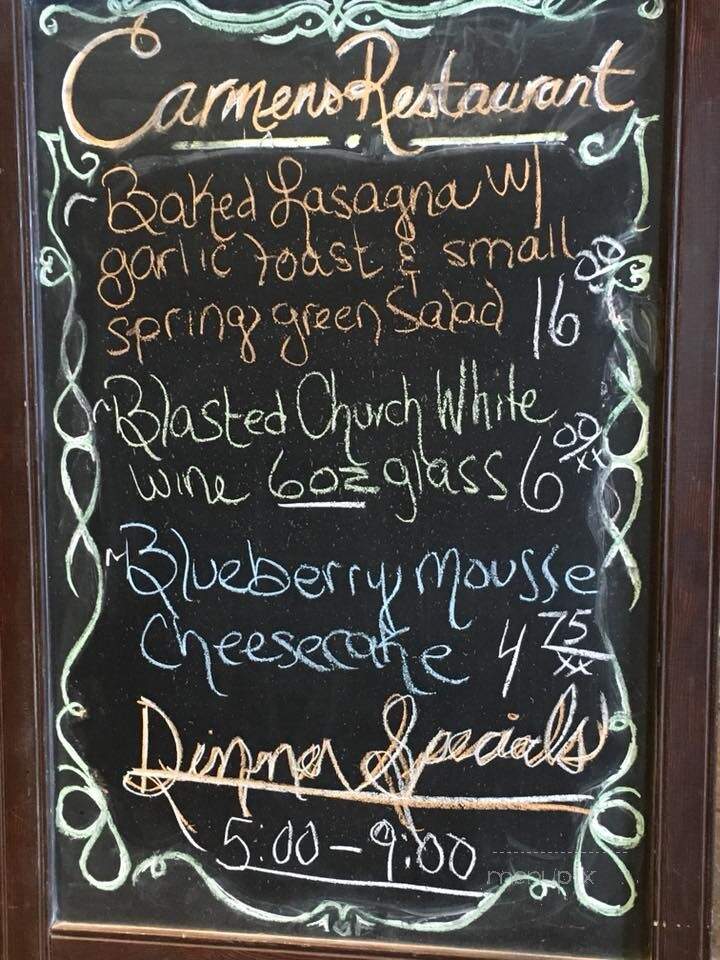 Carmens Restaurant
Baked Lasagna w/
garlic toast & small
spring green Salad 16 00
Blasted Church White
wine 6oz glass 6 00/xx
Blueberry Mousse
Cheesecake 4 75/xx
Dinner Specials
5:00 - 9:00
menupix